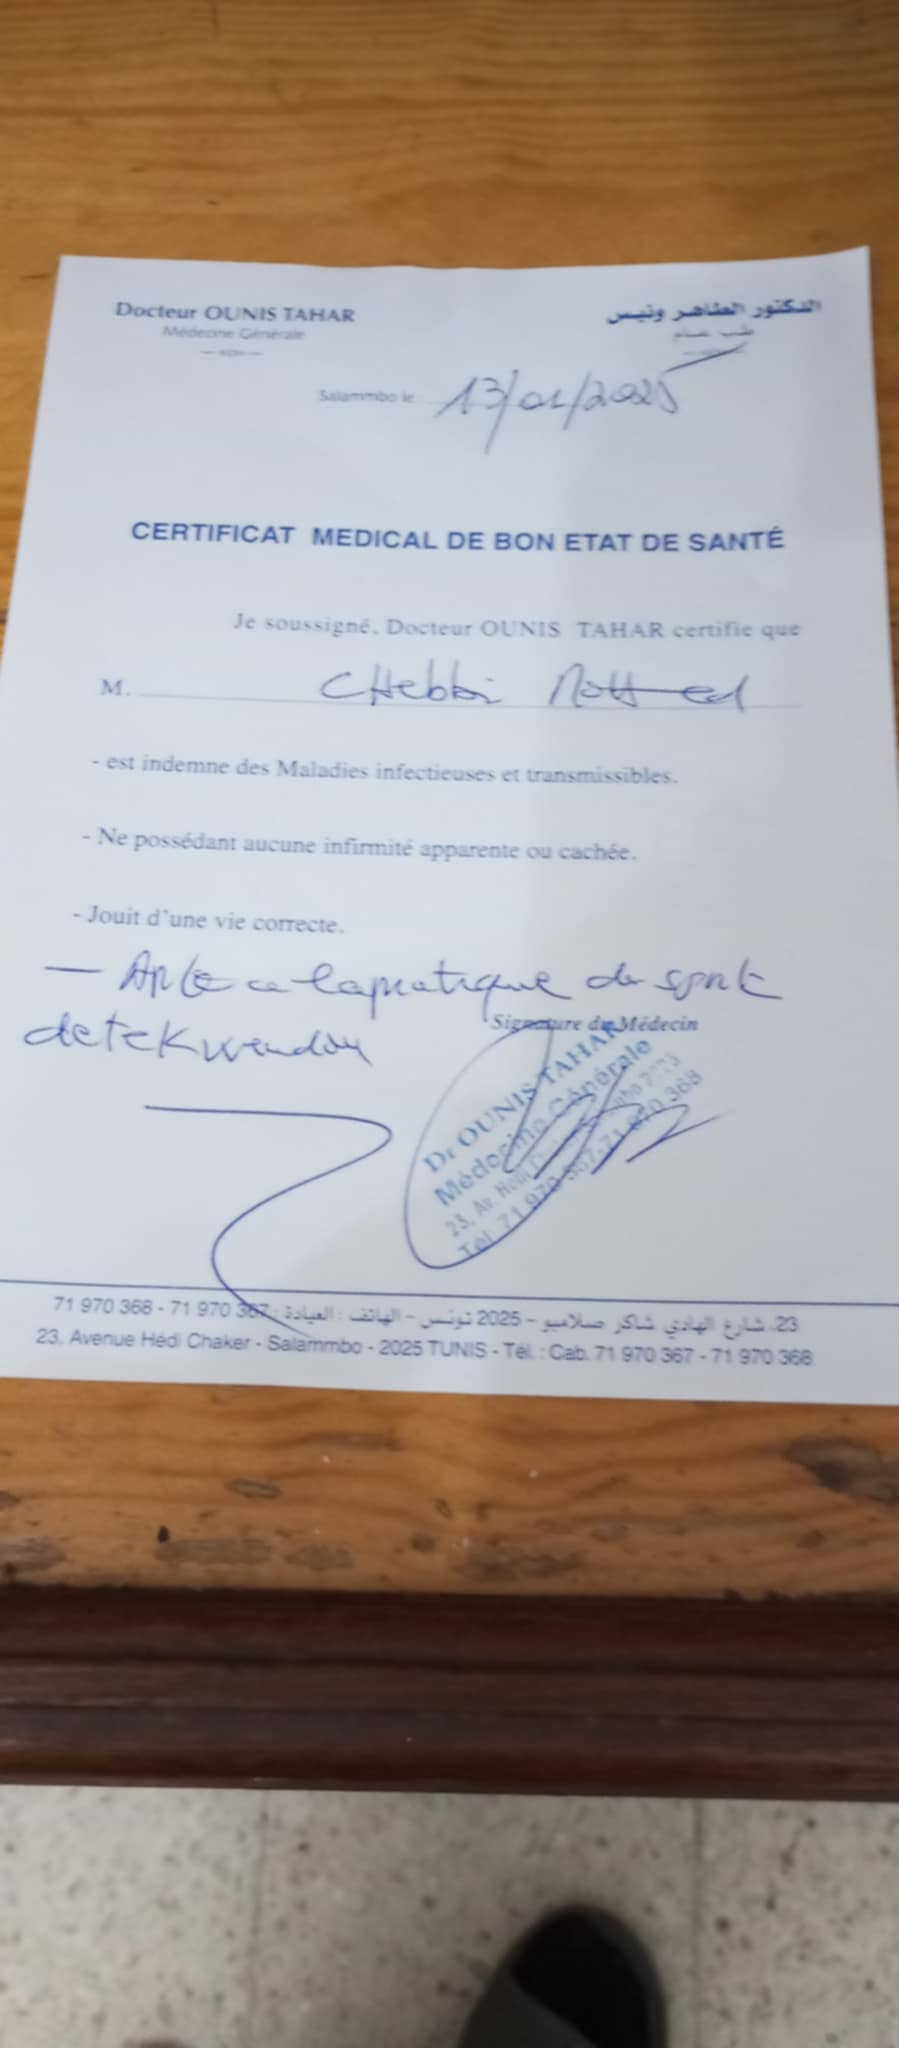 Docteur OUNIS TAHAR
Médecine Générale
الدكتور الطاهر ونيس
طب عام
Salammbo le 13/01/2025
CERTIFICAT MEDICAL DE BON ETAT DE SANTÉ
Je soussigné, Docteur OUNIS TAHAR certifie que
M. CHebbi
- est indemne des Maladies infectieuses et transmissibles.
- Ne possédant aucune infirmité apparente ou cachée.
- Jouit d'une vie correcte.
- Apte a la pratique du sport
Signature du Médecin
Dr OUNIS TAHAR
Médecine Générale
23, Av. Hédi
Tél. 71 970 367-71 970 368
23، شارع الهادي شاكر صلامبو - 2025 تونس - الهاتف : العيادة : 71 970 367 - 71 970 368
23, Avenue Hédi Chaker - Salammbo - 2025 TUNIS - Tél. : Cab. 71 970 367 - 71 970 368